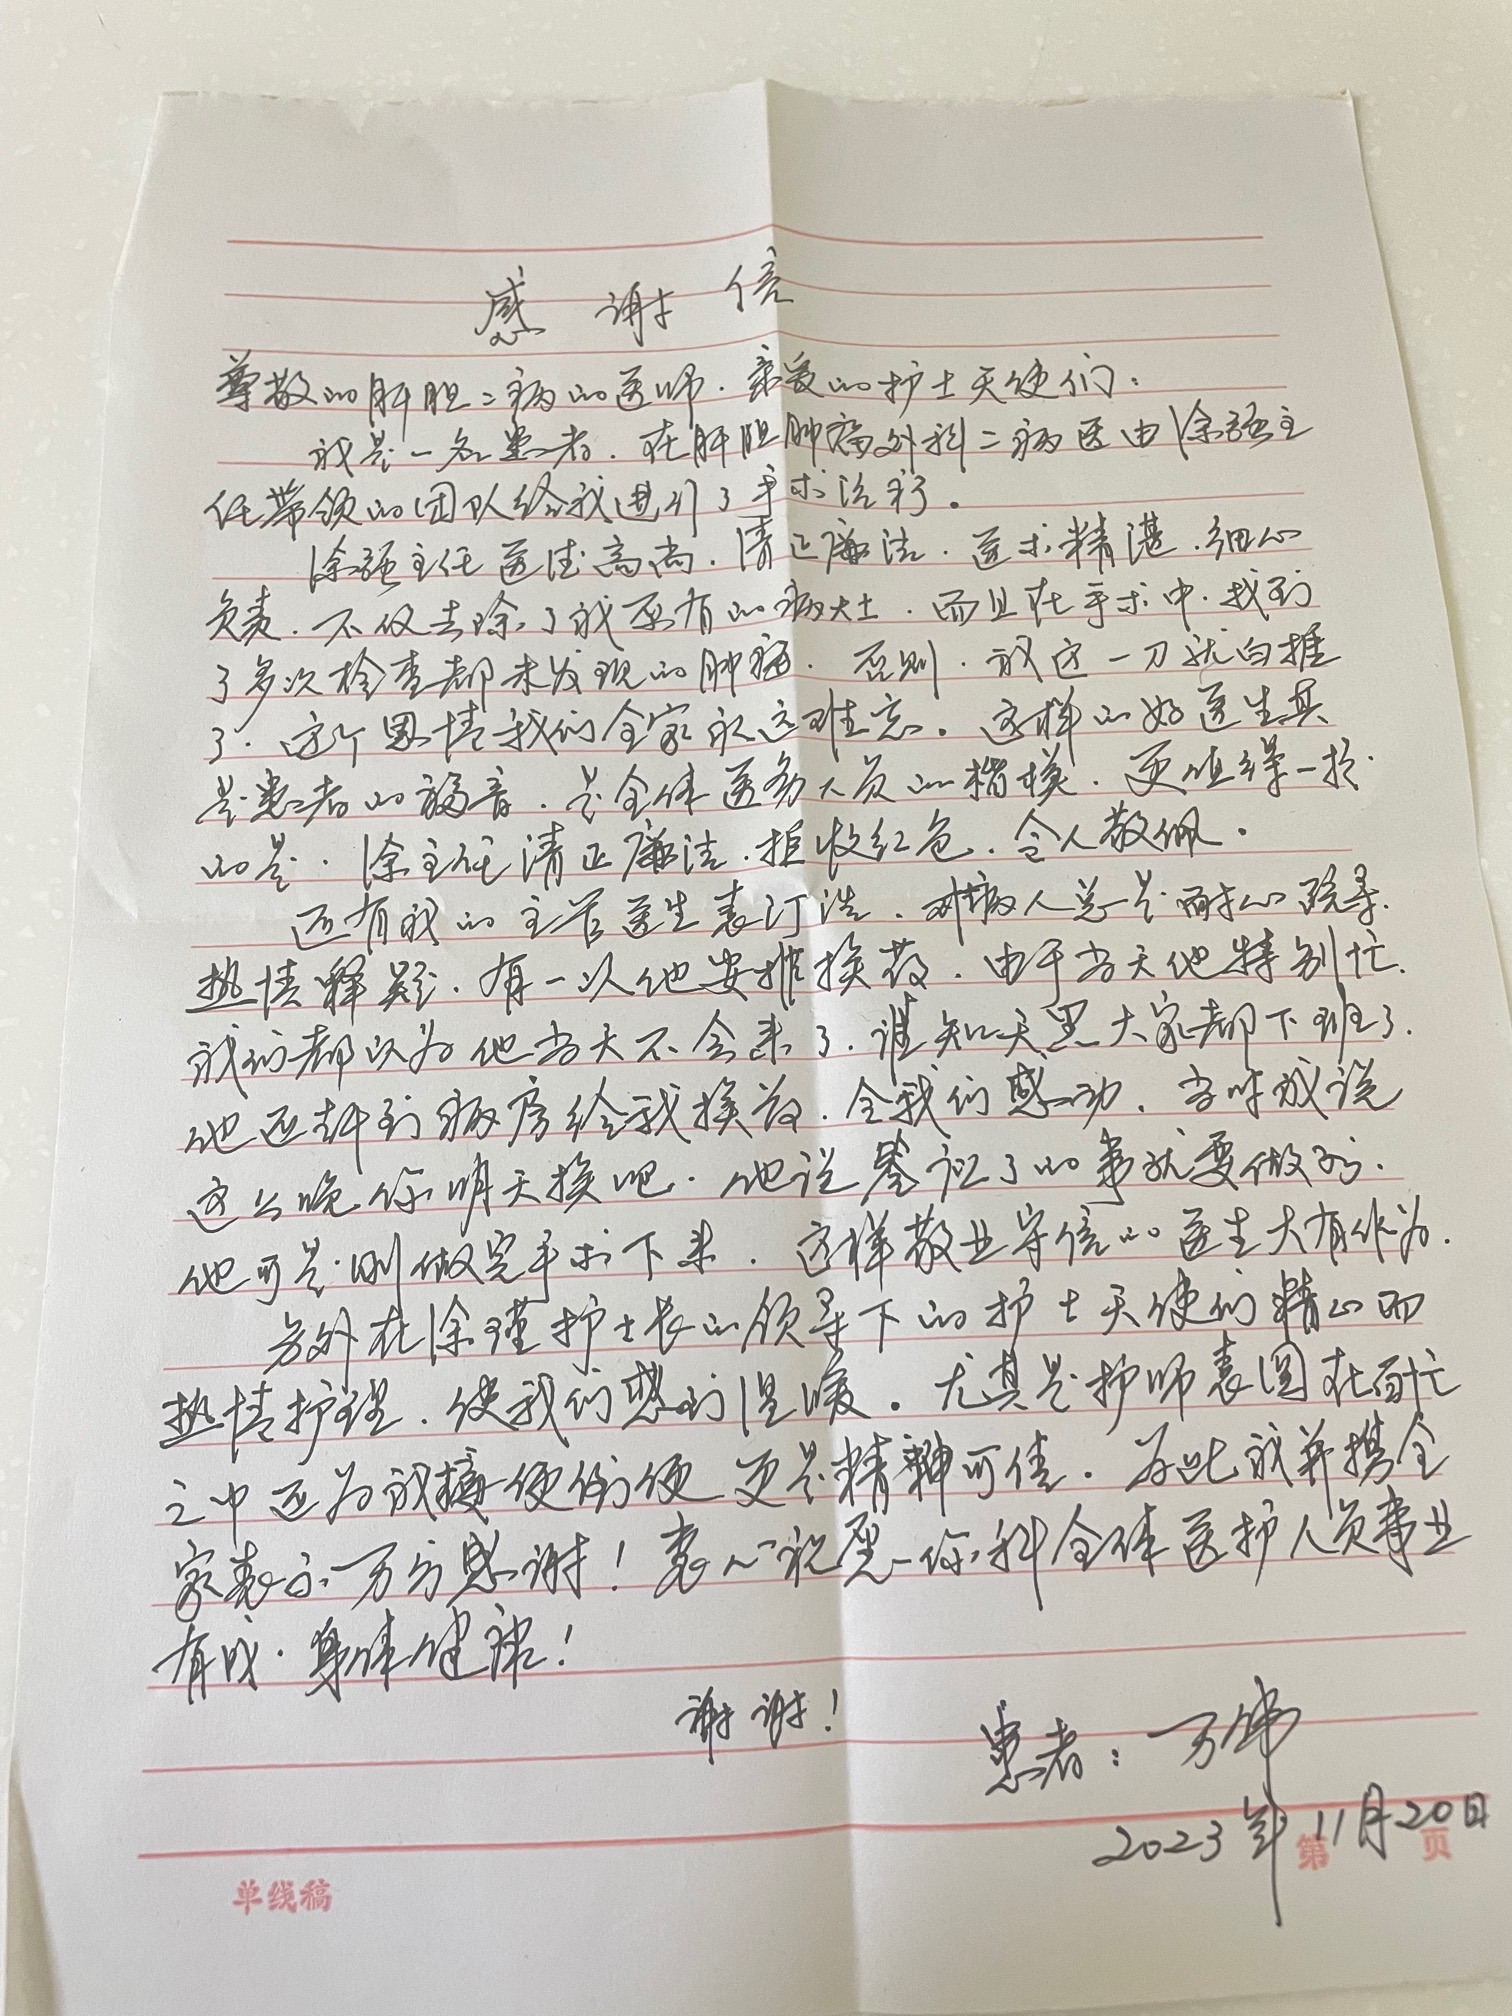 感谢信
尊敬的肝胆二病的医师、亲爱的护士天使们：
我是一名患者，在肝胆肿瘤外科二病医由徐强主
任带领的团队给我进行了手术治疗。
徐强主任医德高尚，清正廉洁，医术精湛，细心
负责，不仅去除了我原有的病灶，而且在手术中，找到
了多次检查都未发现的肿瘤，否则，我这一刀就白挨
了，这个恩情我们全家永远难忘。这样的好医生真
是患者的福音，是全体医务人员的楷模，更值得一提
的是，徐主任清正廉洁，拒收红包，令人敬佩。
还有我的主管医生袁汀浩，对病人总是耐心疏导，
热情释疑，有一次他安排换药，由于当天他特别忙，
我们都以为他当天不会来了，谁知天黑大家都下班了，
他还赶到病房给我换药，令我们感动，当时我说
这么晚你明天换吧，他说答应了的事就要做到，
他可是刚做完手术下来，这样敬业守信的医生大有作为，
另外在徐瑾护士长的领导下的护士天使们精心而
热情护理，使我们感到温暖。尤其是护师袁圆在百忙
之中还为我接便倒便更是精神可佳。为此我并携全
家表示万分感谢！衷心祝愿你科全体医护人员事业
有成，身体健康！
谢谢！
患者：万伟
2023年11月20日
单线稿 第 页